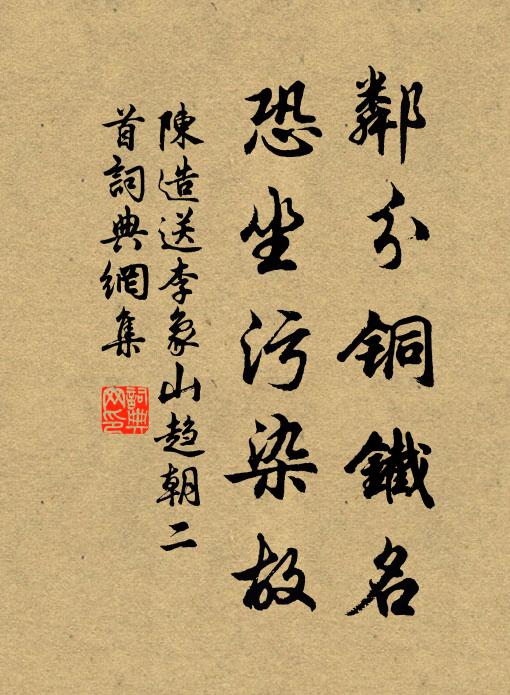 鄰分銅鐵名
恐坐污染故
陳造送李象山趋朝二
首詞典網集
詞典
网印